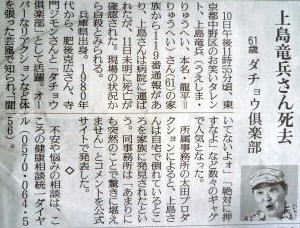 上島竜兵さん死去
61歳 ダチョウ倶楽部
10日午後11時55分頃、東
京都中野区のお笑いタレン
ト、上島竜兵(うえしま・
りゅうへい、本名・龍平=
りゅうへい)さん(61)の家
族から119番通報があ
り、上島さんは病院に運ば
れたが、11日未明に死亡が
確認された。現場の状況か
ら自殺とみられる。
兵庫県出身。1980年
代から肥後克広さん、寺
門ジモンさんと「ダチョウ
倶楽部」として活躍。オー
バーなリアクションなど体
を張った芸風で知られ、「聞
いてないよォ」「絶対に押
すなよ」など数々のギャグ
で人気となった。
所属事務所の太田プロダ
クションによると、上島さ
んは自宅で倒れているとこ
ろを家族に発見されたとい
う。同事務所は「あまりに
も突然のことで驚きに堪え
ません」とコメントを公式
サイトで発表した。
◇
不安や悩みの相談は、こ
ころの健康相談統一ダイヤ
ル(0570・064・5
56)。